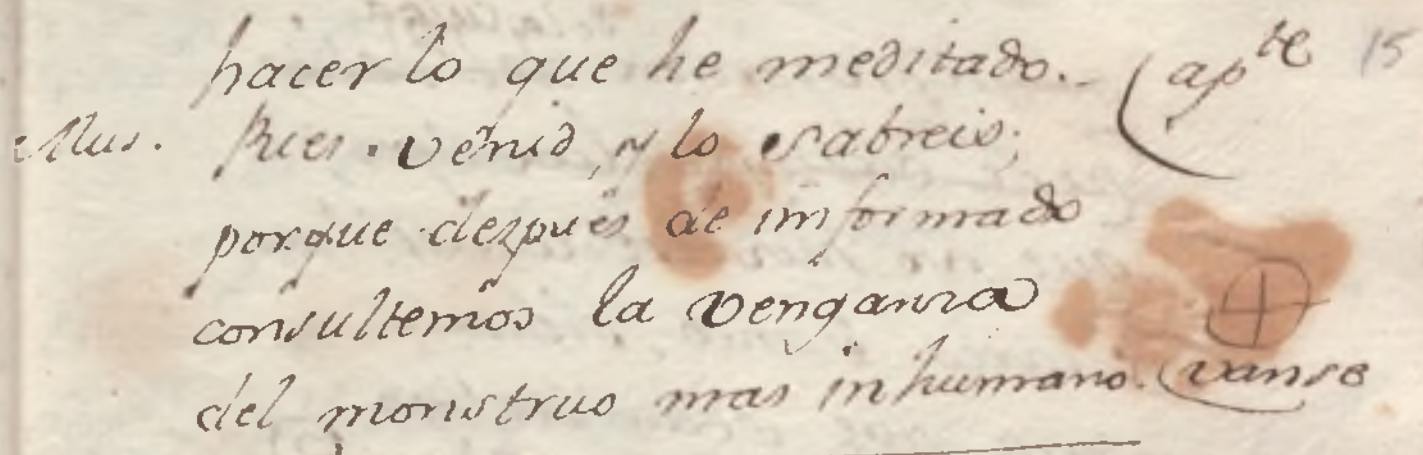 hacer lo que he meditado. (ap.te 15
Mus. Pues venid, y lo sabreis;
porque despues de informado
consultemos la venganza
del monstruo mas inhumano. (vanse